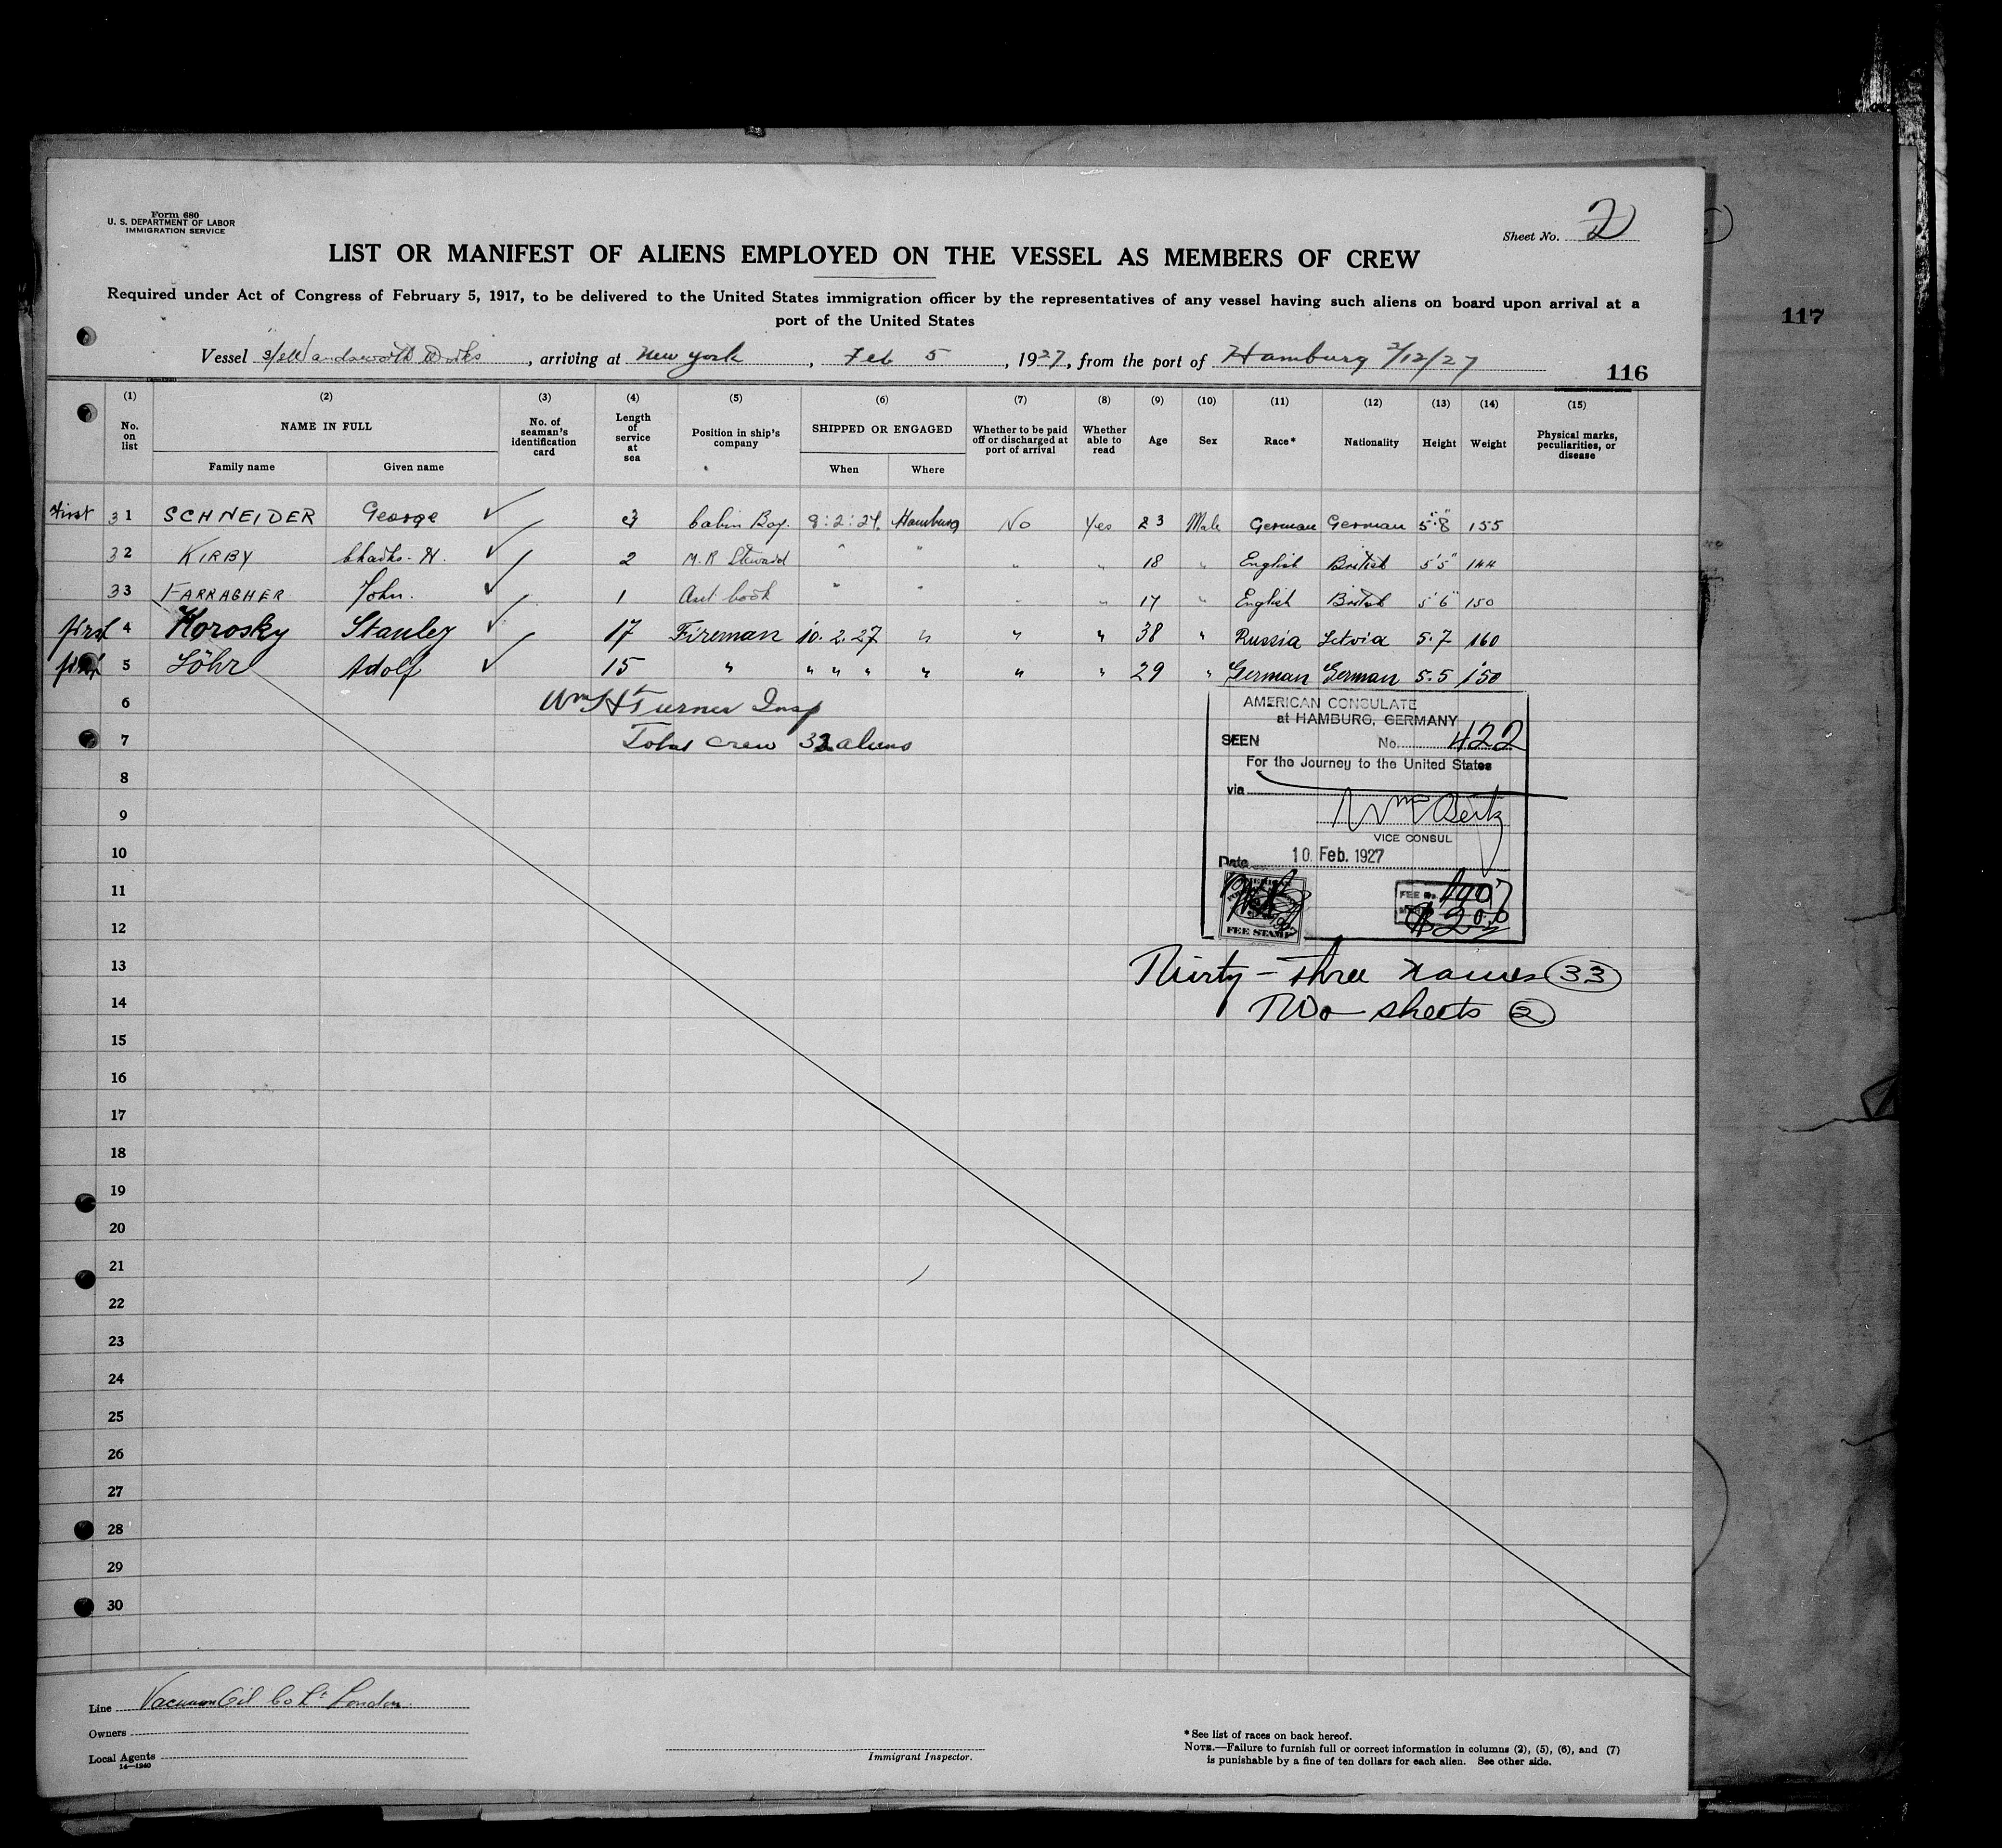 Form 680
U. S. DEPARTMENT OF LABOR
IMMIGRATION SERVICE
Sheet No. 2
LIST OR MANIFEST OF ALIENS EMPLOYED ON THE VESSEL AS MEMBERS OF CREW
Required under Act of Congress of February 5, 1917, to be delivered to the United States immigration officer by the representatives of any vessel having such aliens on board upon arrival at a
port of the United States
117
Vessel , arriving at New York , Feb 5 , 1927, from the port of Hamburg 2/12/27
116
(1) (2) (3) (4) (5) (6) (7) (8) (9) (10) (11) (12) (13) (14) (15)
No. on list NAME IN FULL No. of seaman's identification card Length of service at sea Position in ship's company SHIPPED OR ENGAGED Whether to be paid off or discharged at port of arrival Whether able to read Age Sex Race* Nationality Height Weight Physical marks, peculiarities, or disease
Family name Given name When Where
First 31 SCHNEIDER George ✓ 3 Cabin Boy. 8:2:27. Hamburg No Yes 23 Male German German 5'.8" 155
32 KIRBY H. ✓ 2 M.R Steward " " " " 18 " English British 5'5" 144
33 FARRAGHER John. ✓ 1 " " " " 17 " English British 5'6" 150
first 4 Korosky Stanley ✓ 17 Fireman 10.2.27 " " " 38 " Russia 5.7 160
first 5 Löhr Adolf ✓ 15 " " " " " " " 29 " German German 5.5 150
6 Wm H Turner Insp
7 Total crew 33 aliens
AMERICAN CONSULATE
at HAMBURG, GERMANY
SEEN No. 422
For the Journey to the United States
via
VICE CONSUL
Date 10 Feb. 1927
FEE STAMP
8
9
10
11
12
13
Thirty-three names (33)
14
Two sheets (2)
15
16
17
18
19
20
21
22
23
24
25
26
27
28
29
30
Line Vacuum Oil Co Lt London.
Owners
Local Agents
14—1240
Immigrant Inspector.
*See list of races on back hereof.
NOTE.—Failure to furnish full or correct information in columns (2), (5), (6), and (7)
is punishable by a fine of ten dollars for each alien. See other side.